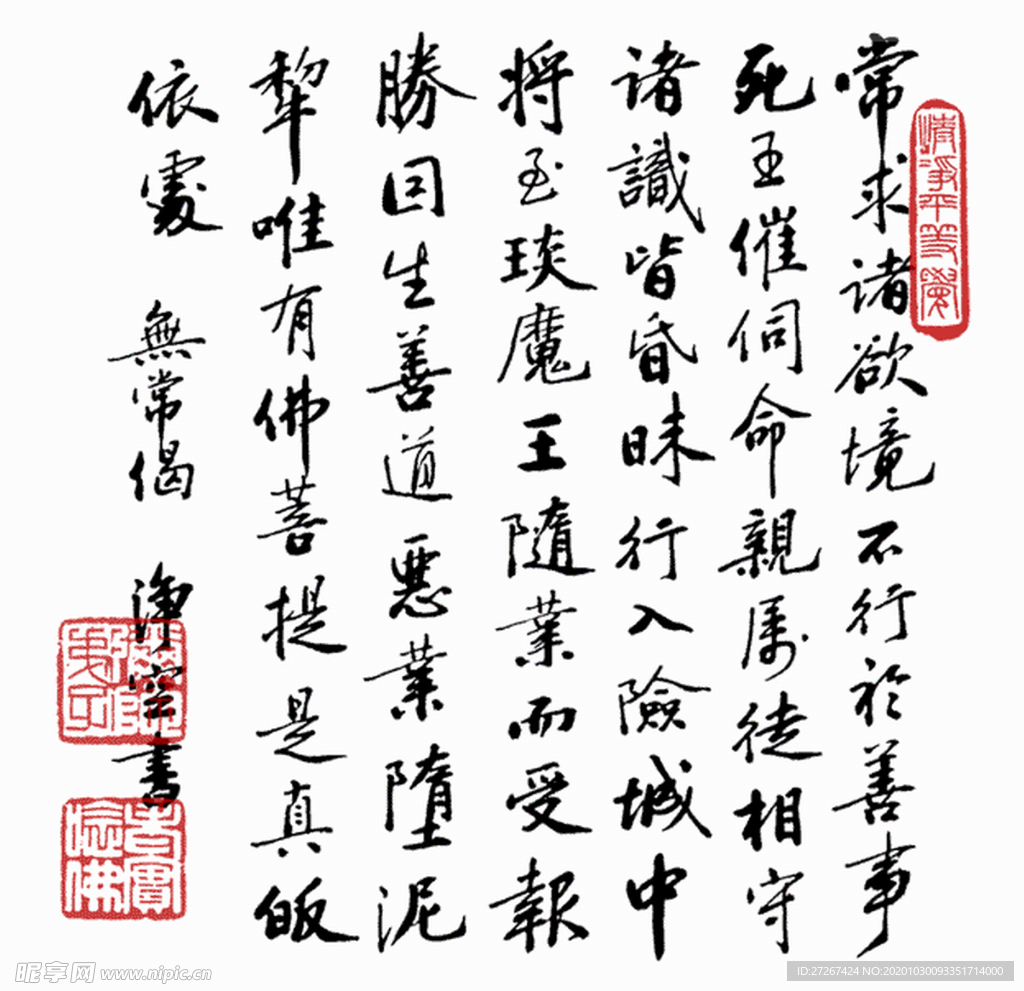 常求诸欲境不行於善事
死王催伺命親属徒相守
诸識皆昏昧行入險城中
将至琰魔王隨業而受報
勝因生善道惡業墮泥
犂唯有佛菩提是真皈
依處 無常偈 淨空書
清淨平等覺
老實念佛
昵享网 www.nipic.cn
ID:27267424 NO:20201030093351714000